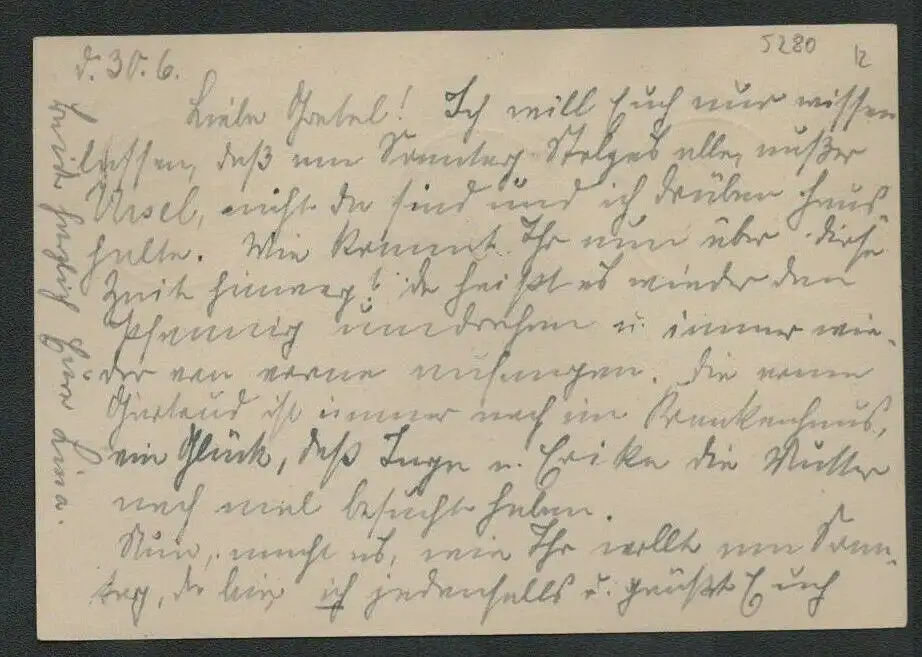 5280
12
d. 30. 6.
Liebe Gretel! Ich will Euch nur wissen
lassen, daß am Sonntag Stelges alle, außer
Ursel, nicht da sind und ich drüben Haus
halte. Wie kommt Ihr nun über diese
Zeit hinweg? da heißt es wieder den
Pfennig umdrehen u. immer wie-
der von vorne anfangen. Die arme
Gertrud ist immer noch im Krankenhaus,
ein Glück, daß Inge u. Erika die Mutter
noch mal besucht haben.
Nun, macht es, wie Ihr wollt am Sonn-
tag, da bin ich jedenfalls u. grüßt Euch
herzlich Eure Lina.